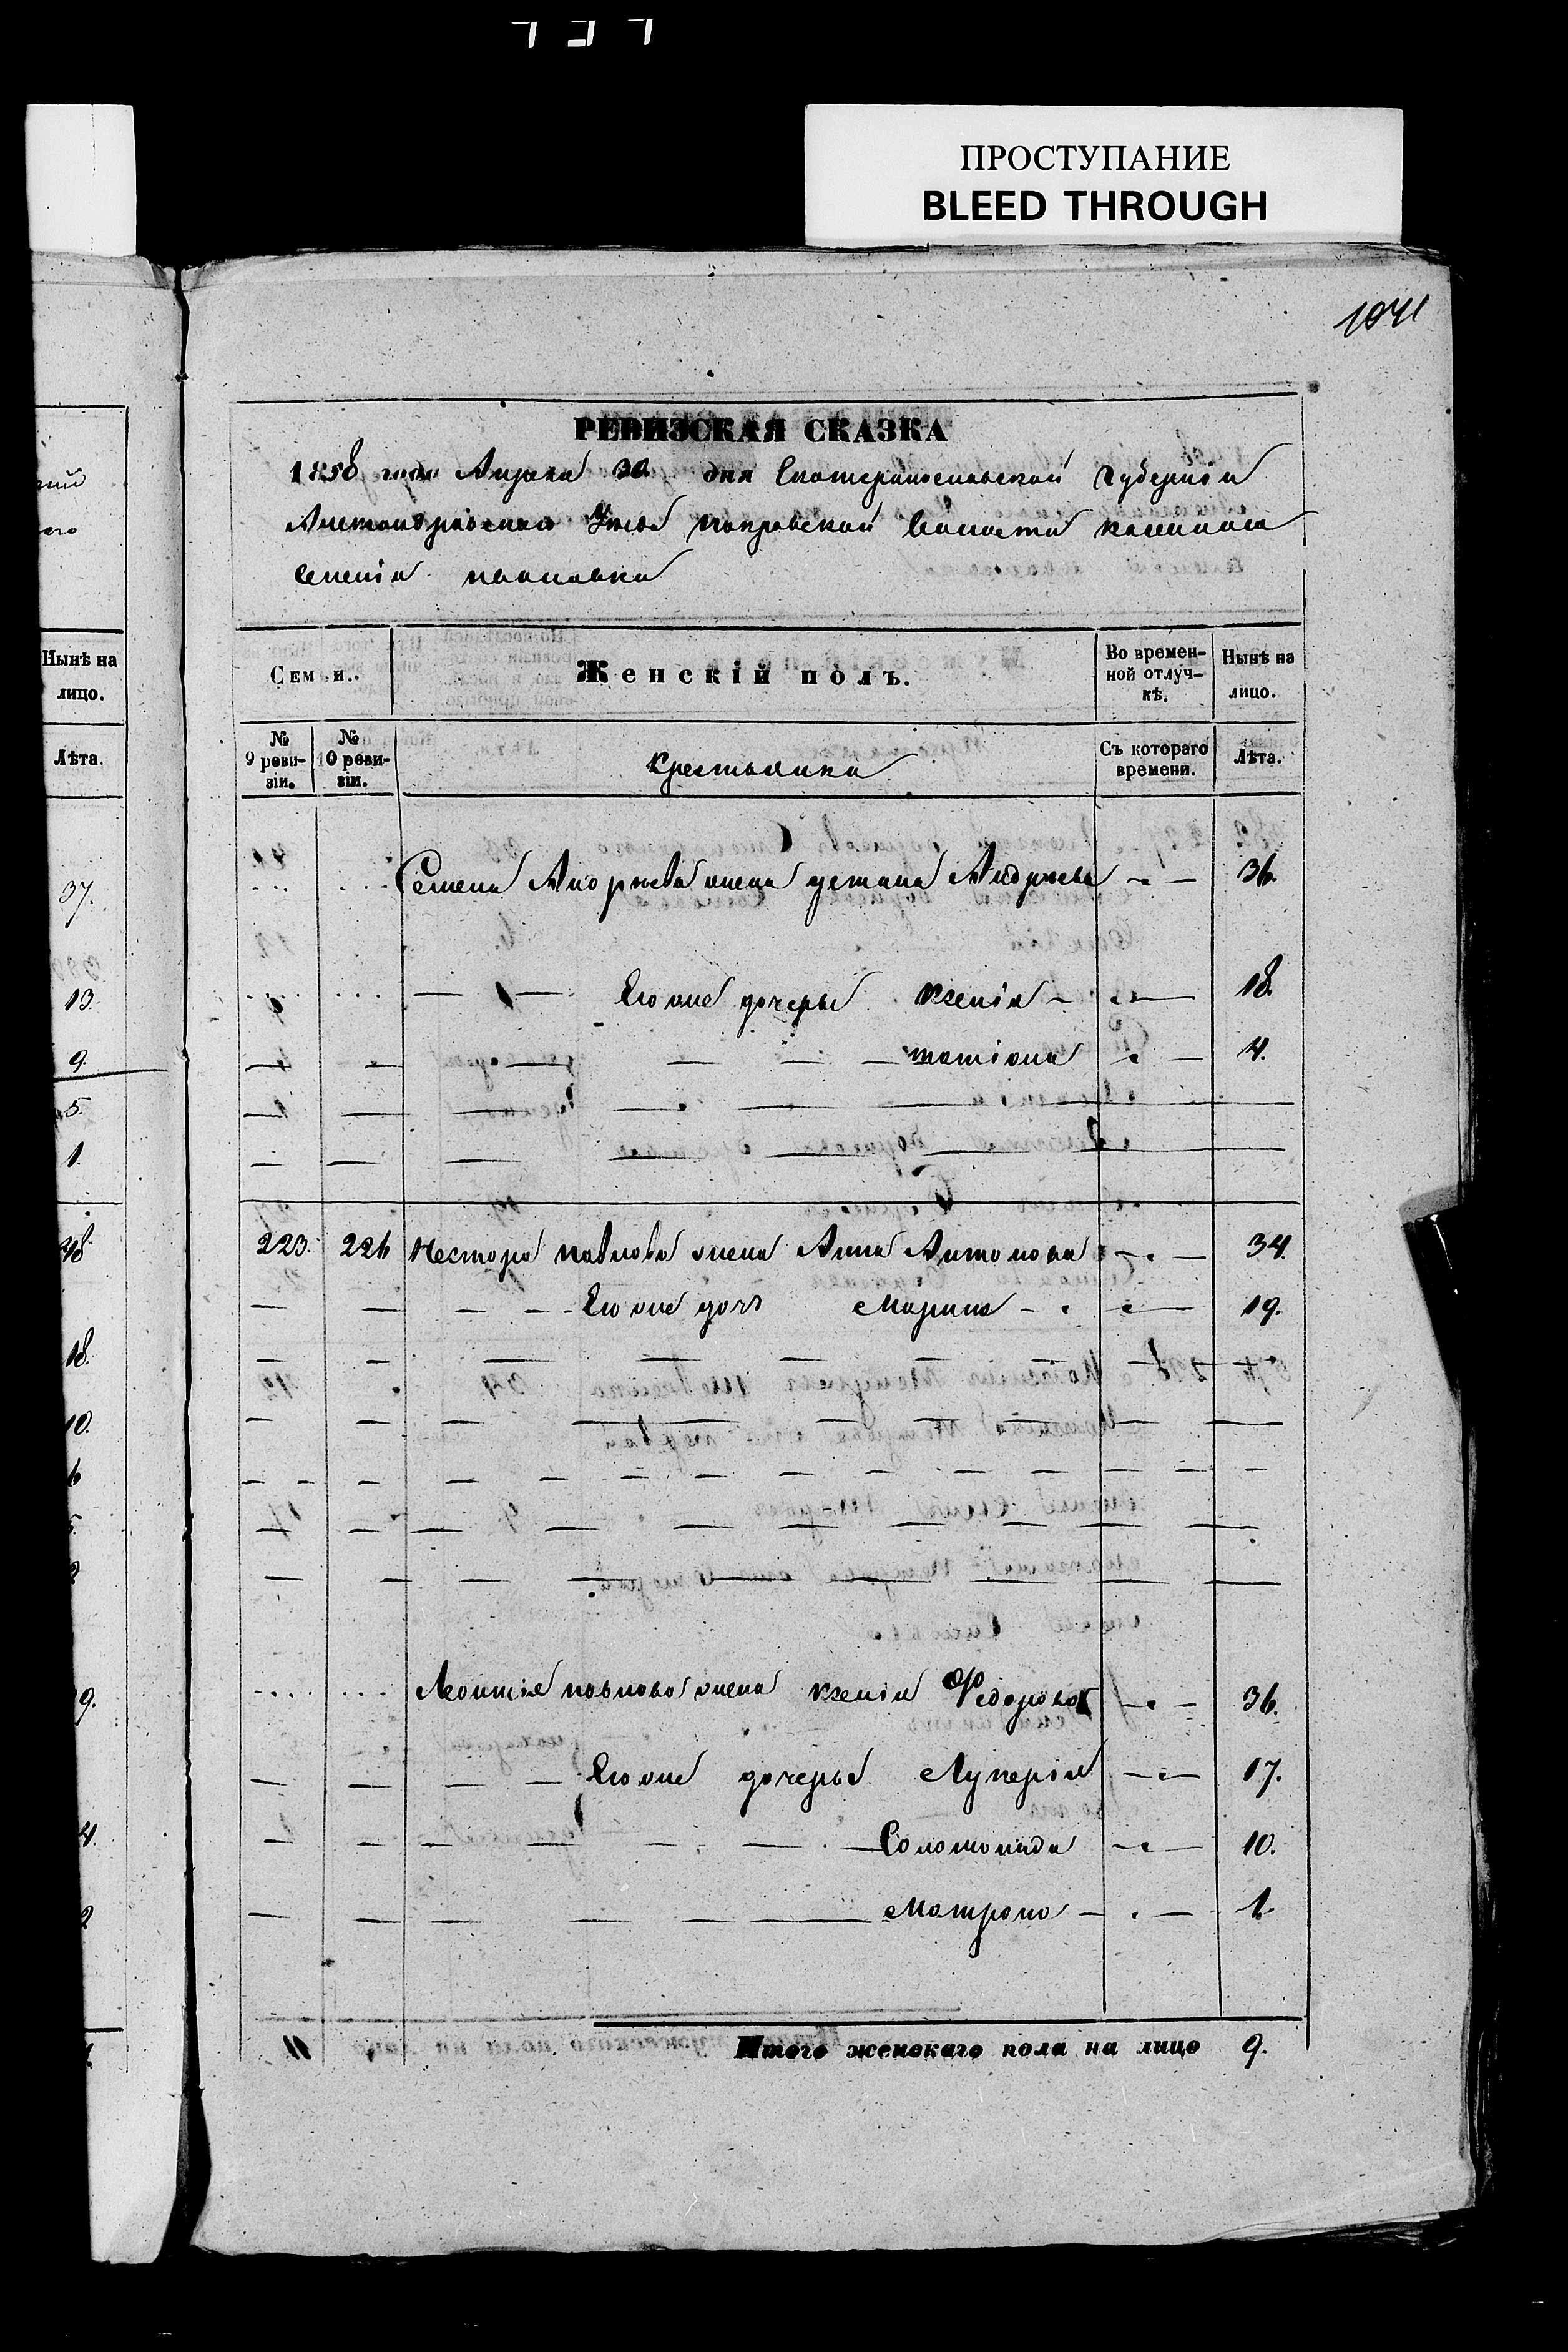 ПРОСТУПАНИЕ
BLEED THROUGH
1041
РЕВИЗСКАЯ СКАЗКА
1858 года Апреля 30 дня Екатеринославской Губернии
Александровскаго Уезда покровской Волости казеннаго
селенія
Нынѣ на лицо.
Лѣта.
37.
13.
9.
5.
1.
18.
10.
Семьи.
Женскій полъ.
Во временной отлучкѣ.
Нынѣ на лицо.
№ 9 ревизіи.
№ 10 ревизіи.
Крестьянки
Съ котораго времени.
Лѣта.
Семена Андреева жена Андреева 36.
Его же дочери Ксенія 18.
татіана 4.
223. 226 Нестора павлова жена Анна Антонова 34.
Его же дочь Марина 19.
Леонтія павлова жена ксенія Федорова 36.
Его же дочери Лукерія 17.
Соломонида 10.
Матрона 1.
Итого женскаго пола на лицо 9.